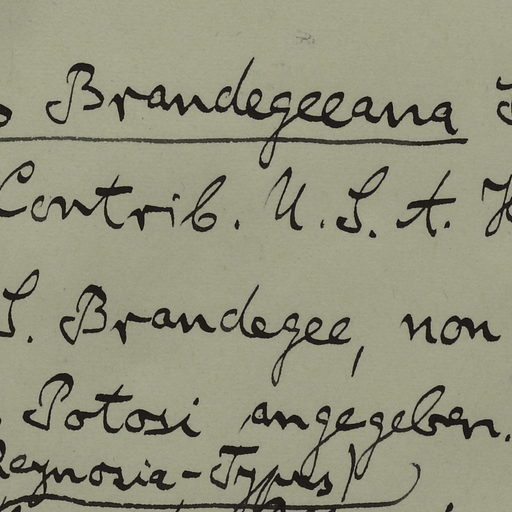 Brandegeeana
Contrib. U. S. A.
S. Brandegee, non
Potosi angegeben.
Reynosia-Types)